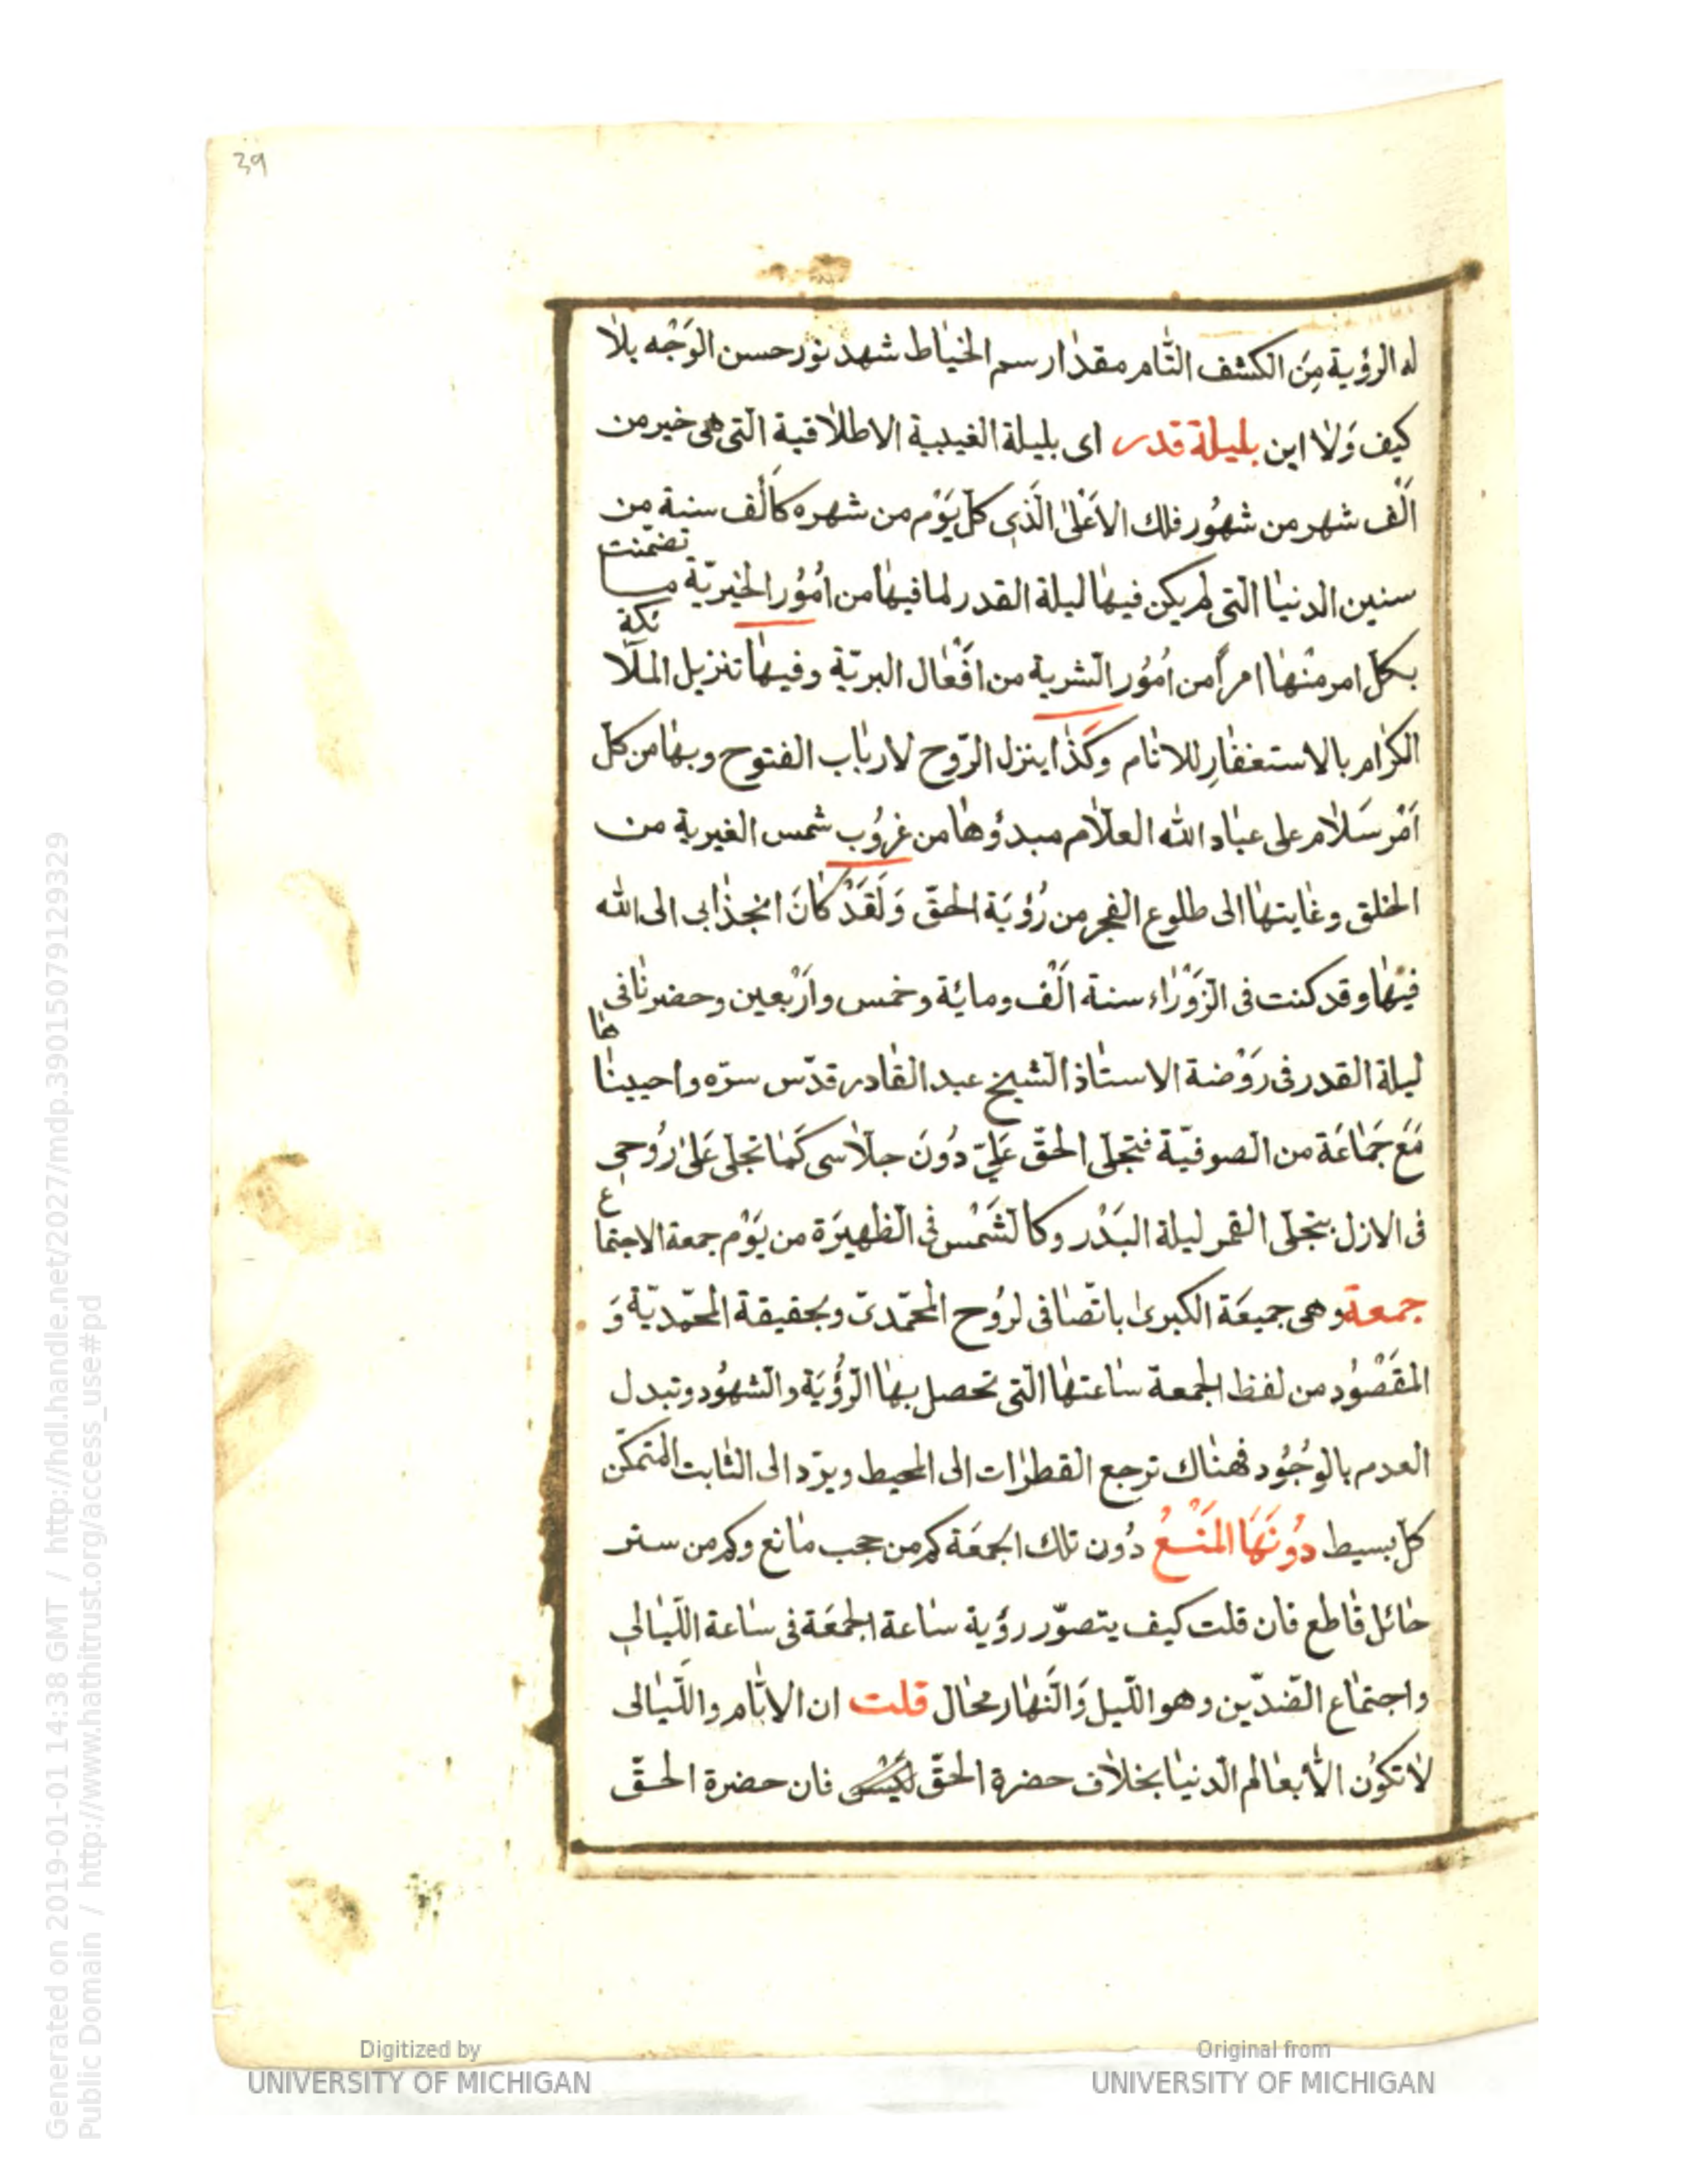 39
له الرؤية مِنَ الكشف التّام مقدار سم الخياط شهد نور حسن الوَجْه بلا
كيف وَلا اين بليلة قدر اى بليلة الغيبية الاطلاقية الّتى هى خير من
اَلْف شهر من شهُور فلك الاَعْلى الّذى كلّ يَوْم من شهره كاَلْف سنة من
سنين الدنيا الّتى لم يكن فيها ليلة القدر لما فيها من اُمُور الخيريّة ما تضمّنت
بكلّ امر منْها امراً من اُمُور الشرية من افْعال البريّة وفيها تنزيل الملآئكة
الكرام بالاستغفارِ للانام وكَذا ينزل الرّوح لارباب الفتوح وبها من كلّ
اَمْر سَلام على عباد الله العلّام مبدؤها من غروُب شمس الغيرية من
الخلق وغايتها الى طلوع الفجر من رُؤيَة الحقّ وَلَقَدْ كانَ انجذابى الى الله
فيْها وقد كنت فى الزَوْراء سنة اَلْف ومائة وخمس واَرْبعين وحضرنا فى
ليلة القدر فى رَوْضة الاستاذ الشيخ عبد القادر قدّس سرّه واحييناها
مَعَ جَماعَة من الصوفيّة فتجلى الحقّ عَليّ دُونَ جلّاسى كَما تجلى عَلى رُوحى
فى الازل بتجلّى القمر ليلة البَدْر وكالشَمْس فى الظهيَرة من يَوْم جمعة الاجتماع
جمعة وهى جميعَة الكبرى باتّصافى لروُح المحمّدىّ وبحقيقة المحمّديّة وَ
المقْصُود من لفظ الجمعة ساعتها الّتى تحصل بها الرُؤْيَة والشهُود وتبدل
العدم بالوجُود فهناك ترجع القطرات الى المحيط ويردّ الى الثابت المتمكّن
كلّ بسيط دُونَهَا المَنْعُ دُون تلك الجمعَة كم من حجب مانع وكم من ستر
حائل قاطع فان قلت كيف يتصوّر رؤية ساعة الجمعَة فى ساعة اللّيالى
واجتماع الضدّين وهو اللّيل وَالنّهار محال قلت ان الايّام واللّيالى
لا تكوُن الّا بعالم الدنيا بخلاف حضرة الحقّ فان حضرة الحقّ
Digitized by
UNIVERSITY OF MICHIGAN
Original from
UNIVERSITY OF MICHIGAN
Generated on 2019-01-01 14:38 GMT / http://hdl.handle.net/2027/mdp.39015079129329
Public Domain / http://www.hathitrust.org/access_use#pd